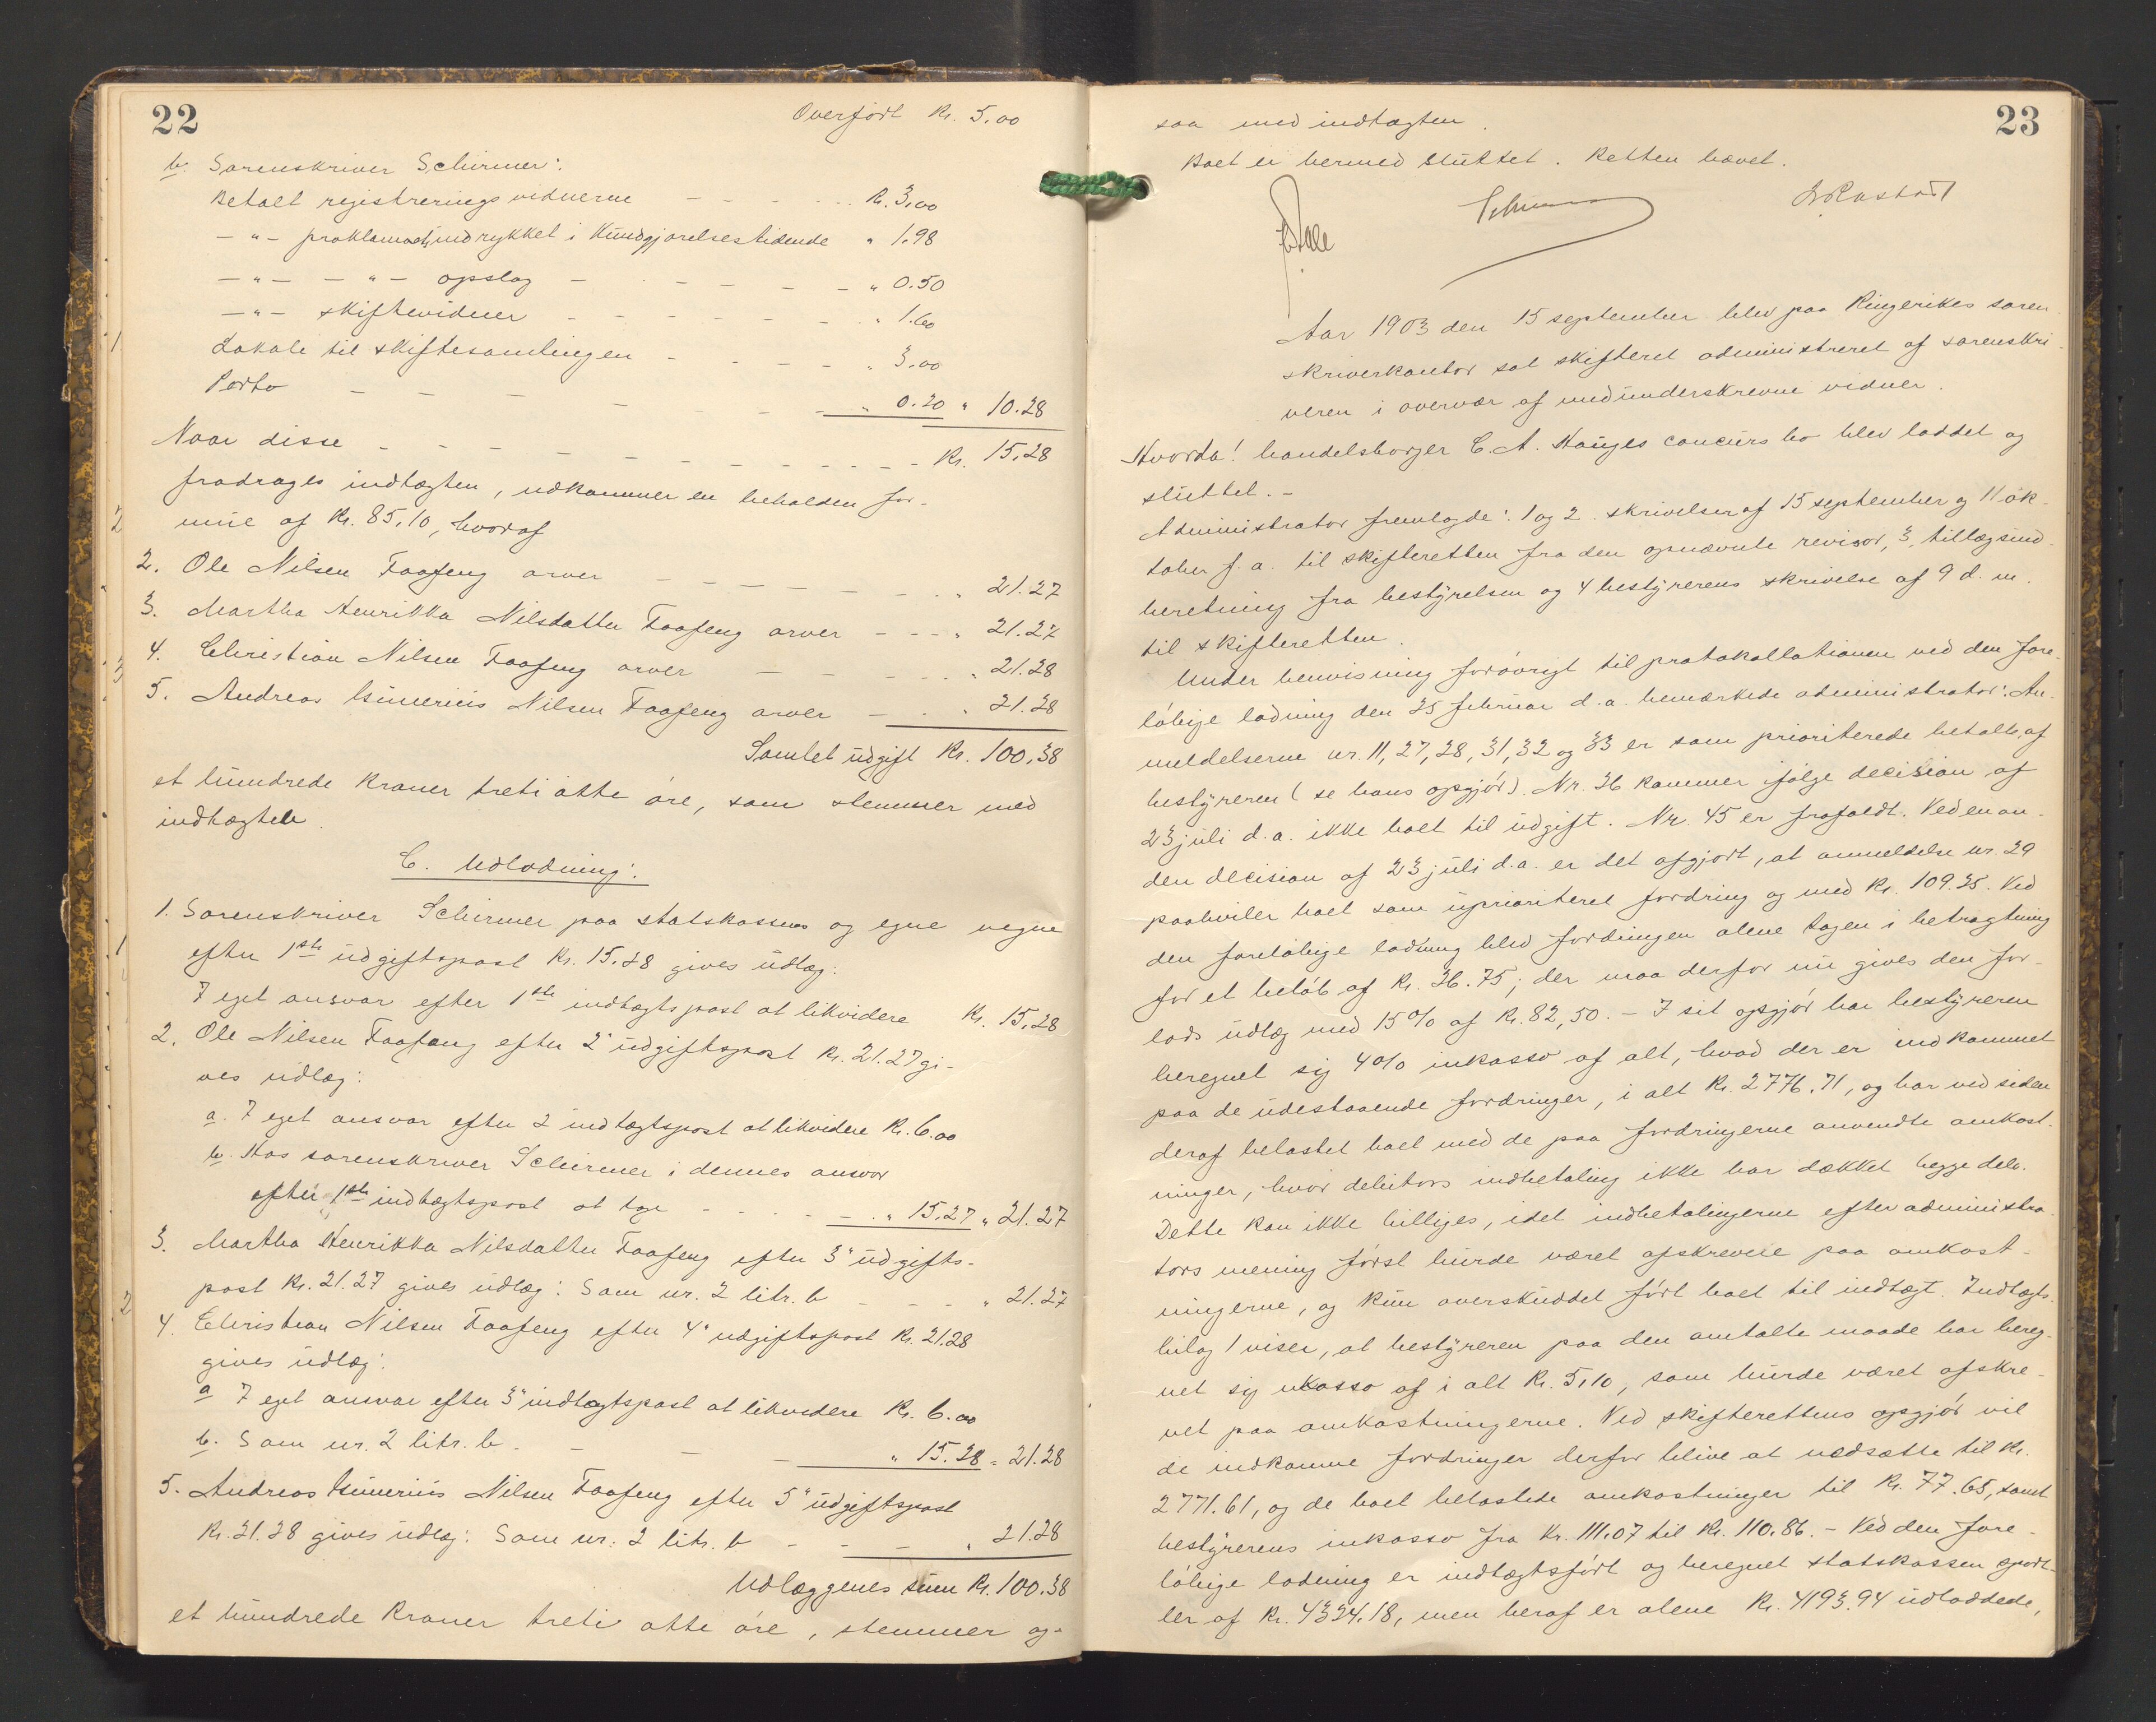 22
Overført Kr. 5.00
b. Sorenskriver Schirmer:
Betalt registreringsvidnerne - - - - Kr. 3,00
- " - proklamaets indrykket i Kundgjørelsestidende " 1.98
- " - - " - opslag - - - - - " 0.50
- " - skiftevidner - - - - - - " 1.60
Lokale til skiftesamlingen - - - - " 3.00
Porto - - - - - - - " 0.20 " 10.28
Naar disse - - - - - - - - - - Kr. 15,28
fradrages indtægten, udkommer en beholden for-
mue af Kr. 85,10, hvoraf
2. Ole Nilsen Faafeng arver - - - - - - " 21.27
3. Martha Henrikka Nilsdatter Faafeng arver - - - " 21.27
4. Christian Nilsen Faafeng arver - - - - - " 21.28
5. Andreas Gunerius Nilsen Faafeng arver - - " 21.28
Samlet udgift Kr. 100,38
et hundrede kroner treti otte øre, som stemmer med
indtægten.
C. Udlodning:
1. Sorenskriver Schirmer paa statskassens og egne vegne
efter 1ste udgiftspost Kr. 15.28 gives udlæg:
I eget ansvar efter 1ste indtægtspost at likvidere Kr. 15,28
2. Ole Nilsen Faafeng efter 2" udgiftspost Kr. 21.27 gi-
ves udlæg:
a. I eget ansvar efter 2 indtægtspost at likvidere Kr. 6.00
b. Hos sorenskriver Schirmer i dennes ansvar
efter 1ste indtægtspost at tage - - - - - " 15,27 " 21.27
3. Martha Henrikka Nilsdatter Faafeng efter 3" udgifts-
post Kr. 21.27 gives udlæg: Som nr. 2 litr. b - - - - " 21.27
4. Christian Nilsen Faafeng efter 4" udgiftspost Kr. 21.28
gives udlæg:
a I eget ansvar efter 3" indtægtspost at likvidere Kr. 6.00
b. Som nr. 2 litr. b. - - - " 15.28 " 21.28
5. Andreas Gunerius Nilsen Faafeng efter 5" udgiftspost
Kr. 21.28 gives udlæg: Som nr. 2 litr. b - - - " 21.28
Udlæggenes sum Kr. 100.38
et hundrede kroner treti otte øre, stemmer og-
23
saa med indtægten.
Boet er hermed sluttet. Retten hævet.
Schirmer
Aar 1903 den 15 september blev paa Ringerikes soren
skriverkontor sat skifteret administreret af sorenskri-
veren i overvær af medunderskrevne vidner.
Hvorda! handelsborger C. A. Hauges concurs bo blev loddet og
sluttet. -
Administrator fremlagde: 1 og 2. skrivelser af 15 september og 11 ok-
tober f. a. til skifteretten fra den opnævnte revisor, 3, tillægsind-
beretning fra bestyrelsen og 4 bestyrerens skrivelse af 9 d. m.
til skifteretten.
Under henvisning forøvrigt til protokollationen ved den fore-
løbige lodning den 25 februar d. a. bemærkede administrator: An-
meldelserne nr. 11, 27, 28, 31, 32 og 33 er som prioriterede betalte af
bestyreren (se hans opgjør). Nr. 26 kommer ifølge decision af
23 juli d. a. ikke boet til udgift. Nr. 45 er frafaldt. Ved en an-
den decision af 23 juli d. a. er det afgjort, at anmeldelse nr. 29
paahviler boet som uprioriteret fordring og med Kr. 109.25. Ved
den foreløbige lodning blev fordringen alene tagen i betragtning
for et beløb af Kr. 26.75; der maa derfor nu gives den for-
lods udlæg med 15% af Kr. 82,50. - I sit opgjør har bestyreren
beregnet sig 4% inkasso af alt, hvad der er indkommet
paa de udestaaende fordringer, i alt Kr. 2776.71, og har ved siden
deraf belastet boet med de paa fordringerne anvendte omkost-
ninger, hvor debitors indbetaling ikke har dækket begge dele.
Dette kan ikke billiges, idet indbetalingerne efter administra-
tors mening først burde været afskrevne paa omkost-
ningerne, og kun overskuddet ført boet til indtægt. Indtægts-
bilag 1 viser, at bestyreren paa den omtalte maade har bereg-
net sig inkasso af i alt Kr. 5,10, som burde været afskre-
vet paa omkostningerne. Ved skifterettens opgjør vil
de indkomne fordringer derfor blive at nedsætte til Kr.
2771.61, og de boet belastede omkostninger til Kr. 77.65, samt
bestyrerens inkasso fra Kr. 111,07 til Kr. 110.86. - Ved den fore-
løbige lodning er indtægtsført og beregnet statskassen sport-
ler af Kr. 4324.18, men heraf er alene Kr. 4193.94 udloddede,